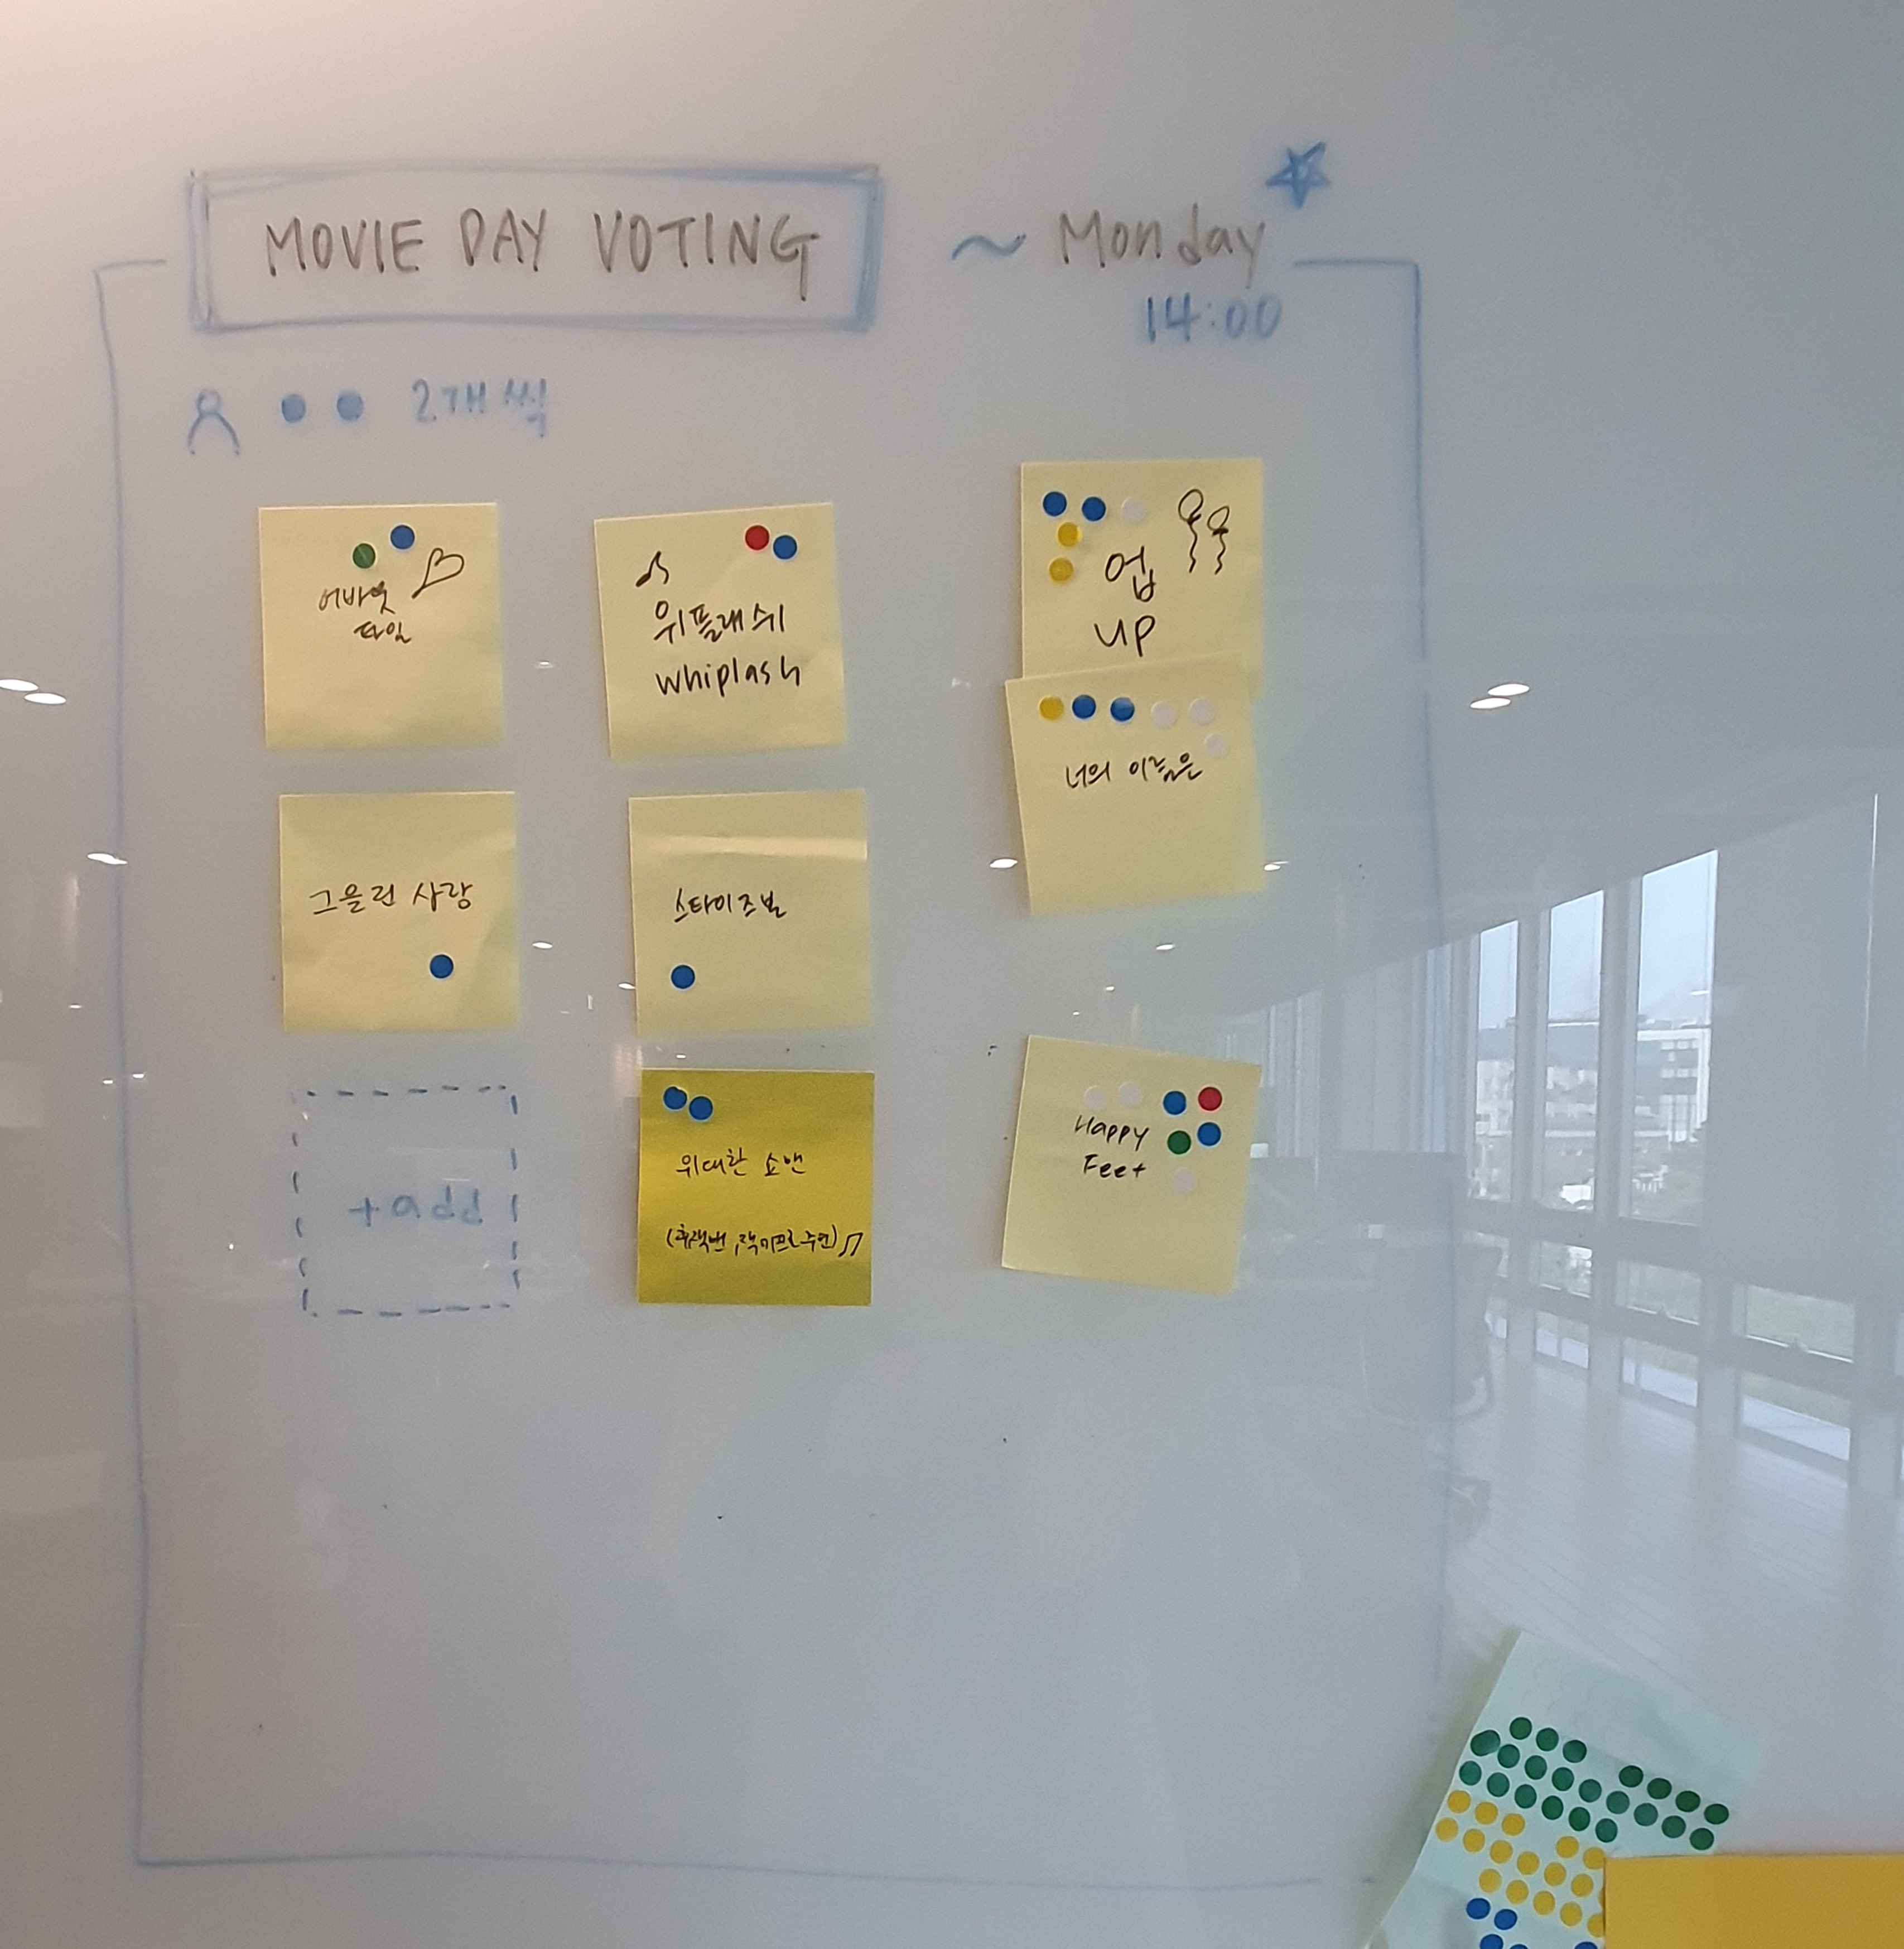 MOVIE DAY VOTING
~ Monday
14:00
2개씩
어바웃
타임
위플래쉬
whiplash
업
UP
너의 이름은
그을린 사랑
스타이즈본
+add
위대한 쇼맨
Happy
Feet